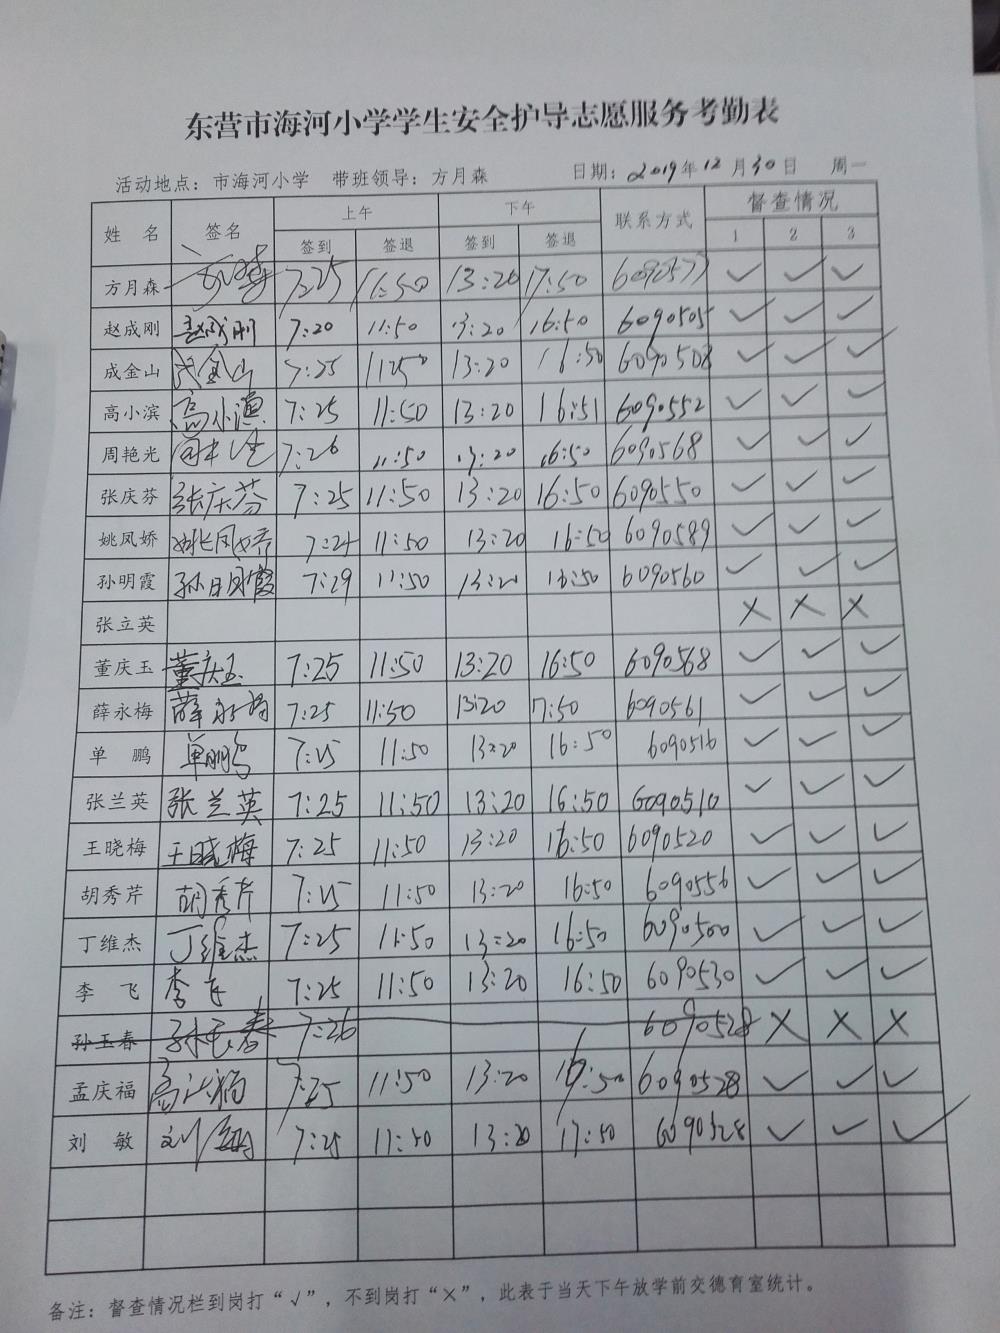 东营市海河小学学生安全护导志愿服务考勤表
活动地点：市海河小学 带班领导：方月森 日期：2019年12月30日 周一
姓名 签名 上午 下午 联系方式 督查情况
签到 签退 签到 签退 1 2 3
方月森 7:25 11:50 13:20 17:50 6090577 ✓ ✓ ✓
赵成刚 赵成刚 7:20 11:50 13:20 16:50 6090505 ✓ ✓ ✓
成金山 成金山 7:25 1150 13:20 16:50 6090508 ✓ ✓ ✓
高小滨 高小滨 7:25 11:50 13:20 16:51 6090552 ✓ ✓ ✓
周艳光 7:26 11:50 13:20 16:50 6090568 ✓ ✓ ✓
张庆芬 张庆芬 7:25 11:50 13:20 16:50 6090550 ✓ ✓ ✓
姚凤娇 姚凤娇 7:24 11:50 13:20 16:50 6090589 ✓ ✓ ✓
孙明霞 孙明霞 7:29 11:50 13:20 16:50 6090560 ✓ ✓ ✓
张立英 × × ×
董庆玉 董庆玉 7:25 11:50 13:20 16:50 6090568 ✓ ✓ ✓
薛永梅 薛永梅 7:25 11:50 13:20 17:50 6090561 ✓ ✓ ✓
单鹏 单鹏 7:25 11:50 13:20 16:50 6090516 ✓ ✓ ✓
张兰英 张兰英 7:25 11:50 13:20 16:50 6090510 ✓ ✓ ✓
王晓梅 王晓梅 7:25 11:50 13:20 16:50 6090520 ✓ ✓ ✓
胡秀芹 胡秀芹 7:25 11:50 13:20 16:50 6090556 ✓ ✓ ✓
丁维杰 丁维杰 7:25 11:50 13:20 16:50 6090500 ✓ ✓ ✓
李飞 李飞 7:25 11:50 13:20 16:50 6090530 ✓ ✓ ✓
孙玉春 孙玉春 7:26 6090528 × × ×
孟庆福 7:25 11:50 13:20 16:50 6090528 ✓ ✓ ✓
刘敏 7:25 11:50 13:20 17:50 6090528 ✓ ✓ ✓
备注：督查情况栏到岗打“√”，不到岗打“×”，此表于当天下午放学前交德育室统计。